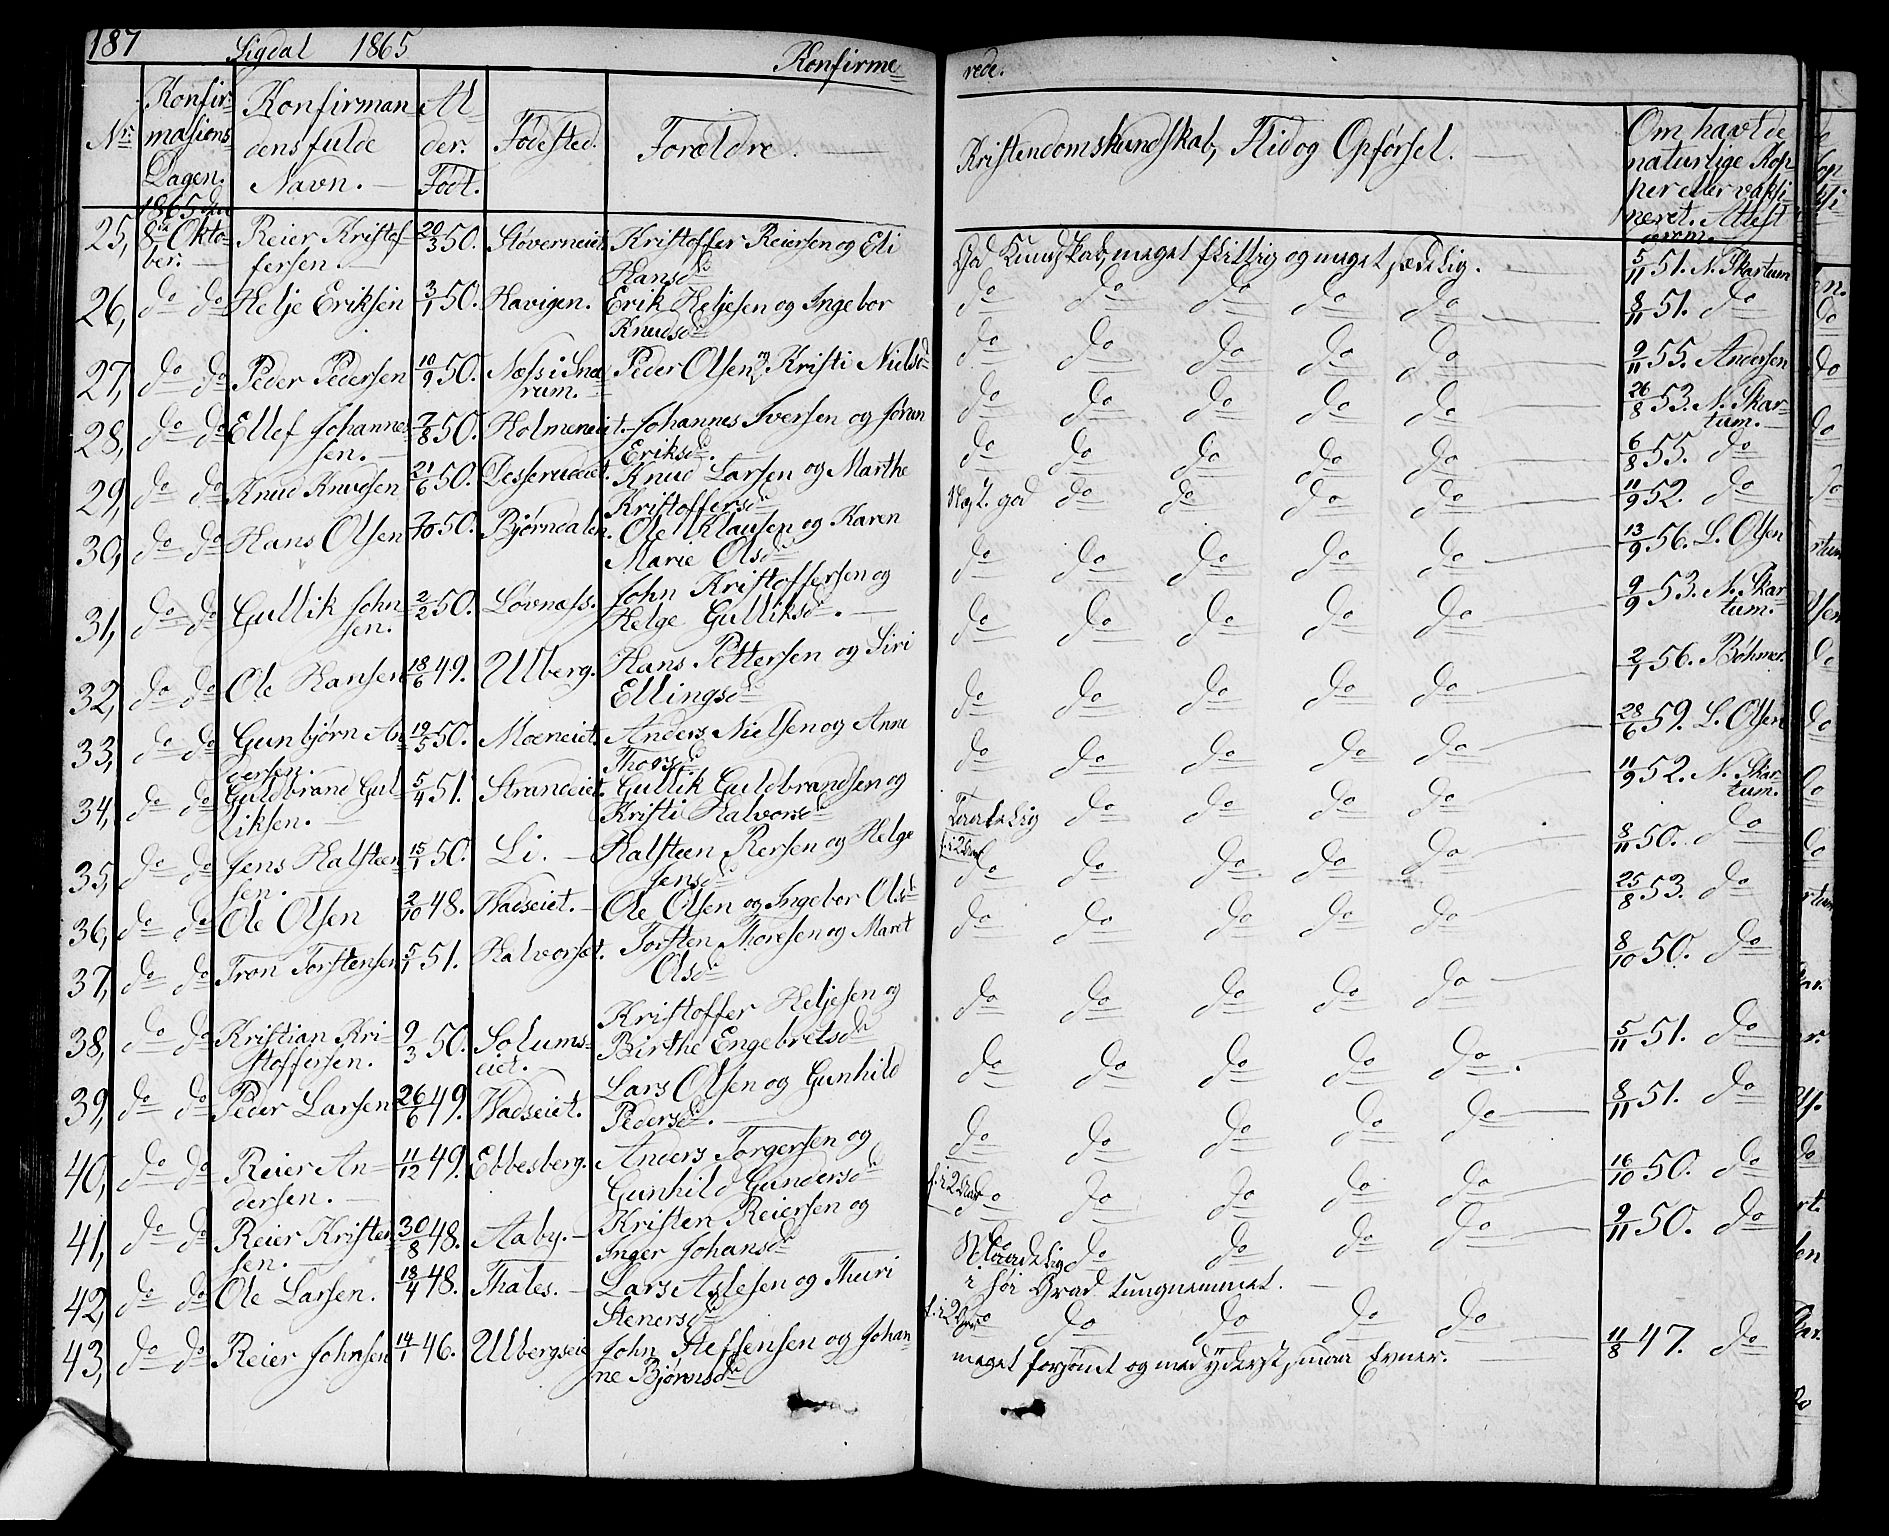 187 Sigdal 1865 Konfirme= rede.
Nr. Konfir=masions Dagen. Konfirmandens fulde Navn. Alder. Født. Fødested. Forældre. Kristendomskundskab, Flid og Opførsel. Om havt de naturlige Kopper eller vaksineret. Attest derom.
25, 1865 den 8de Oktober. Reier Kristoffersen. 20/3 50. Støverneiet Kristoffer Reiersen og Eli Hansd. God Kundskab, meget flittig og meget sædelig. 5/11 51. N. Skartum
26, do do Helje Eriksen 3/1 50. Havigen. Erik Heljesen og Ingebor Knudsd. do do do do do 8/11 51. do
27, do do Peder Pedersen 10/9 50. Næss i Snarum. Peder Olsen og Kristi Nielsd. do do do do do 9/11 55. Andersen
28, do do Ellef Johannessen. 7/8 50. Holmeneiet. Johannes Iversen og Jøran Eriksd. do do do do do 26/8 53. N. Skartum.
29, do do Knud Knudsen 21/6 50. Knud Larsen og Marthe Kristoffersd. do do do do do 6/8 55. do
30, do do Hans Olsen 7/10 50. Bjørndalen. Ole Klausen og Karen Marie Olsd. god do do do do 11/9 52. do
31, do do Gullik Johnsen. 2/2 50. Løvnæss. John Kristoffersen og Helge Gulliksd. do do do do do 13/9 56. L. Olsen
32, do do Ole Hansen 18/6 49. Ulberg. Hans Pettersen og Siri Ellingsd. do do do do do 9/9 53. N. Skartum.
33, do do Gunbjørn Andersen. 19/5 50. Moeneiet. Anders Nielsen og Anne Thorsd. do do do do do 2/1 56. Bøhmer.
34, do do Guldbrand Gulliksen. 5/4 51. Strandeiet. Gullik Guldbrandsen og Kristi Halvorsd. do do do do do 28/6 59. L. Olsen
35, do do Jens Halsteensen. 15/1 50. Li. Halsteen Persen og Helge Jensd. Taalelig do do do do 11/9 52. N. Skartum.
36, do do Ole Olsen 2/10 48. Hadseiet. Ole Olsen og Ingebor Olsd. do do do do do 8/11 50. do
37, do do Tron Torstensen 5/1 51. Halvorset. Torsten Thoresen og Maret Olsd. do do do do do 25/8 53. do
8/10 50. do
38, do do Kristian Kristoffersen. 9/3 50. Solumseiet. Kristoffer Heljesen og Birthe Engebretsd. do do do do do 5/11 51. do
39, do do Peder Larsen 26/6 49. Hadseiet. Lars Olsen og Gunhild Pedersd. do do do do do 8/11 51. do
40, do do Reier Andersen. 11/12 49. Ebbesberg. Anders Torgersen og Gunhild Gundersd. do do do do do 16/10 50. do
41, do do Reier Kristensen. 30/8 48. Aaby. Kristen Reiersen og Inger Johansd. do do do do do 9/11 50. do
42, do do Ole Larsen. 18/4 48. Thales. Lars Aslesen og Thuri Stenersd. do do do do i høi Grad tungnemmet.
43, do do Reier Johnsen 14/1 46. Ulbergseie John Steffensen og Johanne Bjørnsd. do do do do do meget forsømt og med yderst smaa Evner. 11/8 47. do